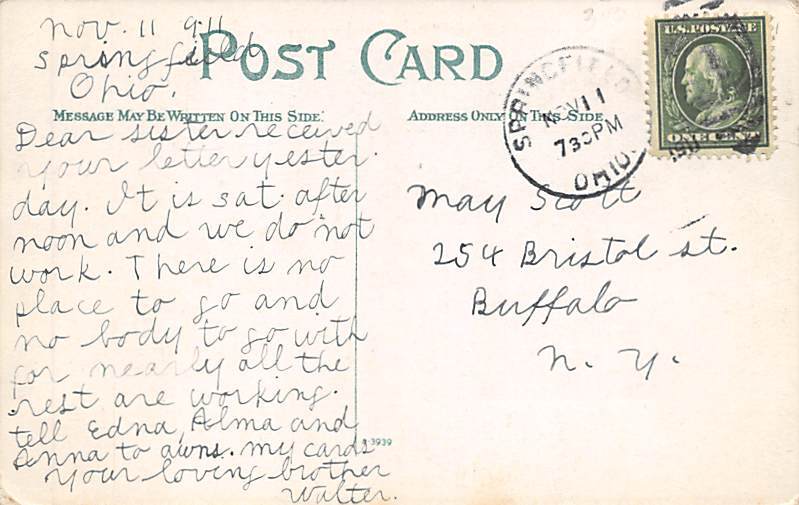 Nov. 11 911
Springfield
Ohio.
POST CARD
MESSAGE MAY BE WRITTEN ON THIS SIDE.
ADDRESS ONLY ON THIS SIDE
SPRINGFIELD
NOV 11
730PM
OHIO.
U.S. POSTAGE
ONE CENT
Dear sister received
your letter yester-
day. It is sat. after
noon and we do not
work. There is no
place to go and
no body to go with
for nearly all the
rest are working.
tell Edna, Alma and
Anna to awns. my cards
your loving brother
Walter.
May Scott
254 Bristol st.
Buffalo
N. Y.
3939